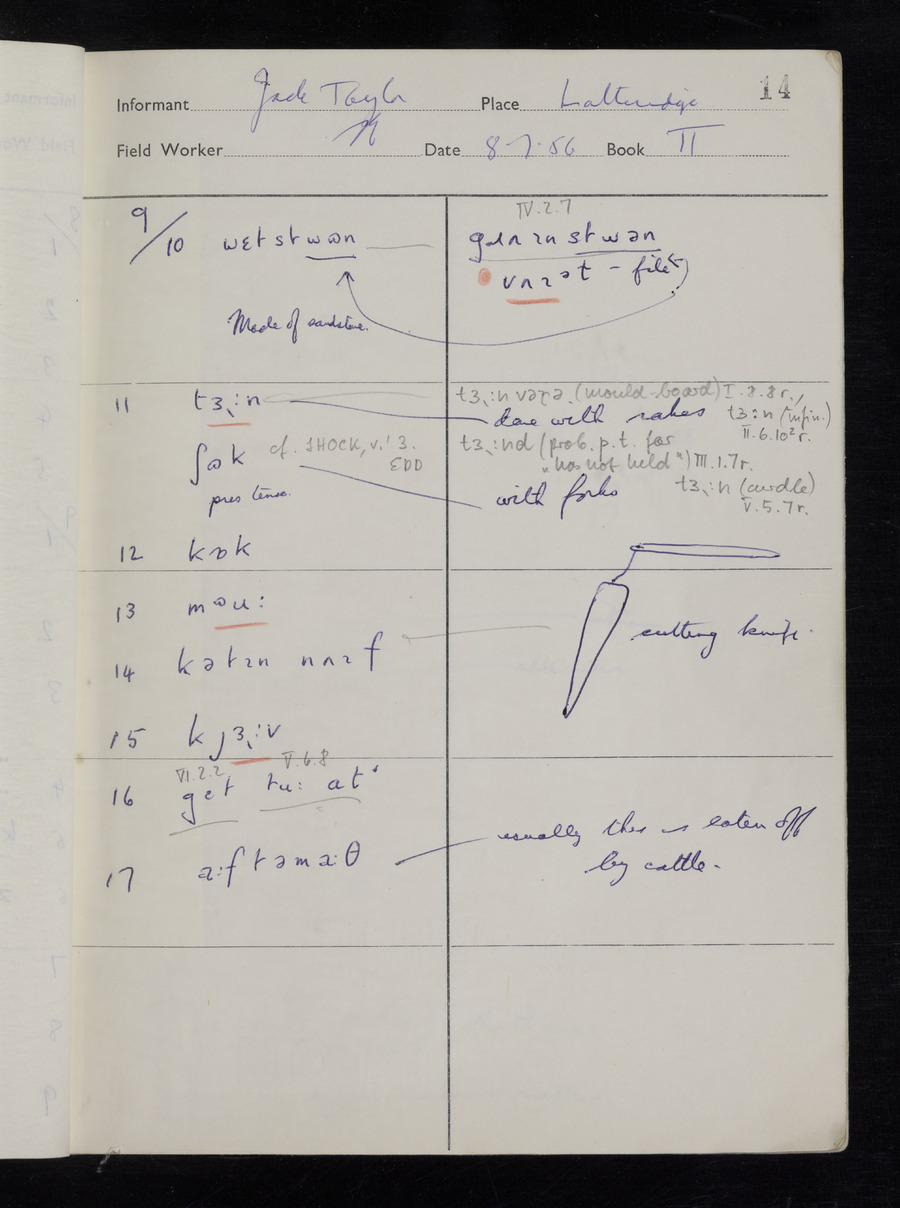 14
Informant Jack Taylor Place Latteridge
Field Worker Date 8-7-56 Book II
9/10 wɛtstwən
IV.2.7
stwən
vʌɪət - file
Made of sandstone.
11 tɜ˞:n
tɜ˞:nvəɽə (mould-board) I.8.8r.,
done with rakes tɜ:n (infin.)
II.6.10²r.
ʃɷk cf. SHOCK, v.¹ 3.
EDD
tɜ˞:nd (prob. p.t. for
"has not held") III.1.7r.
pres tense.
with forks
tɜ˞:n (curdle)
V.5.7r.
12 kɒk
13 məu:
14 kətɪn nʌɪf
cutting knife.
15 kjɜ˞:v
VI.2.2 V.6.8
16 get tu: at
17 a:ftəma:θ
usually this is eaten off
by cattle.